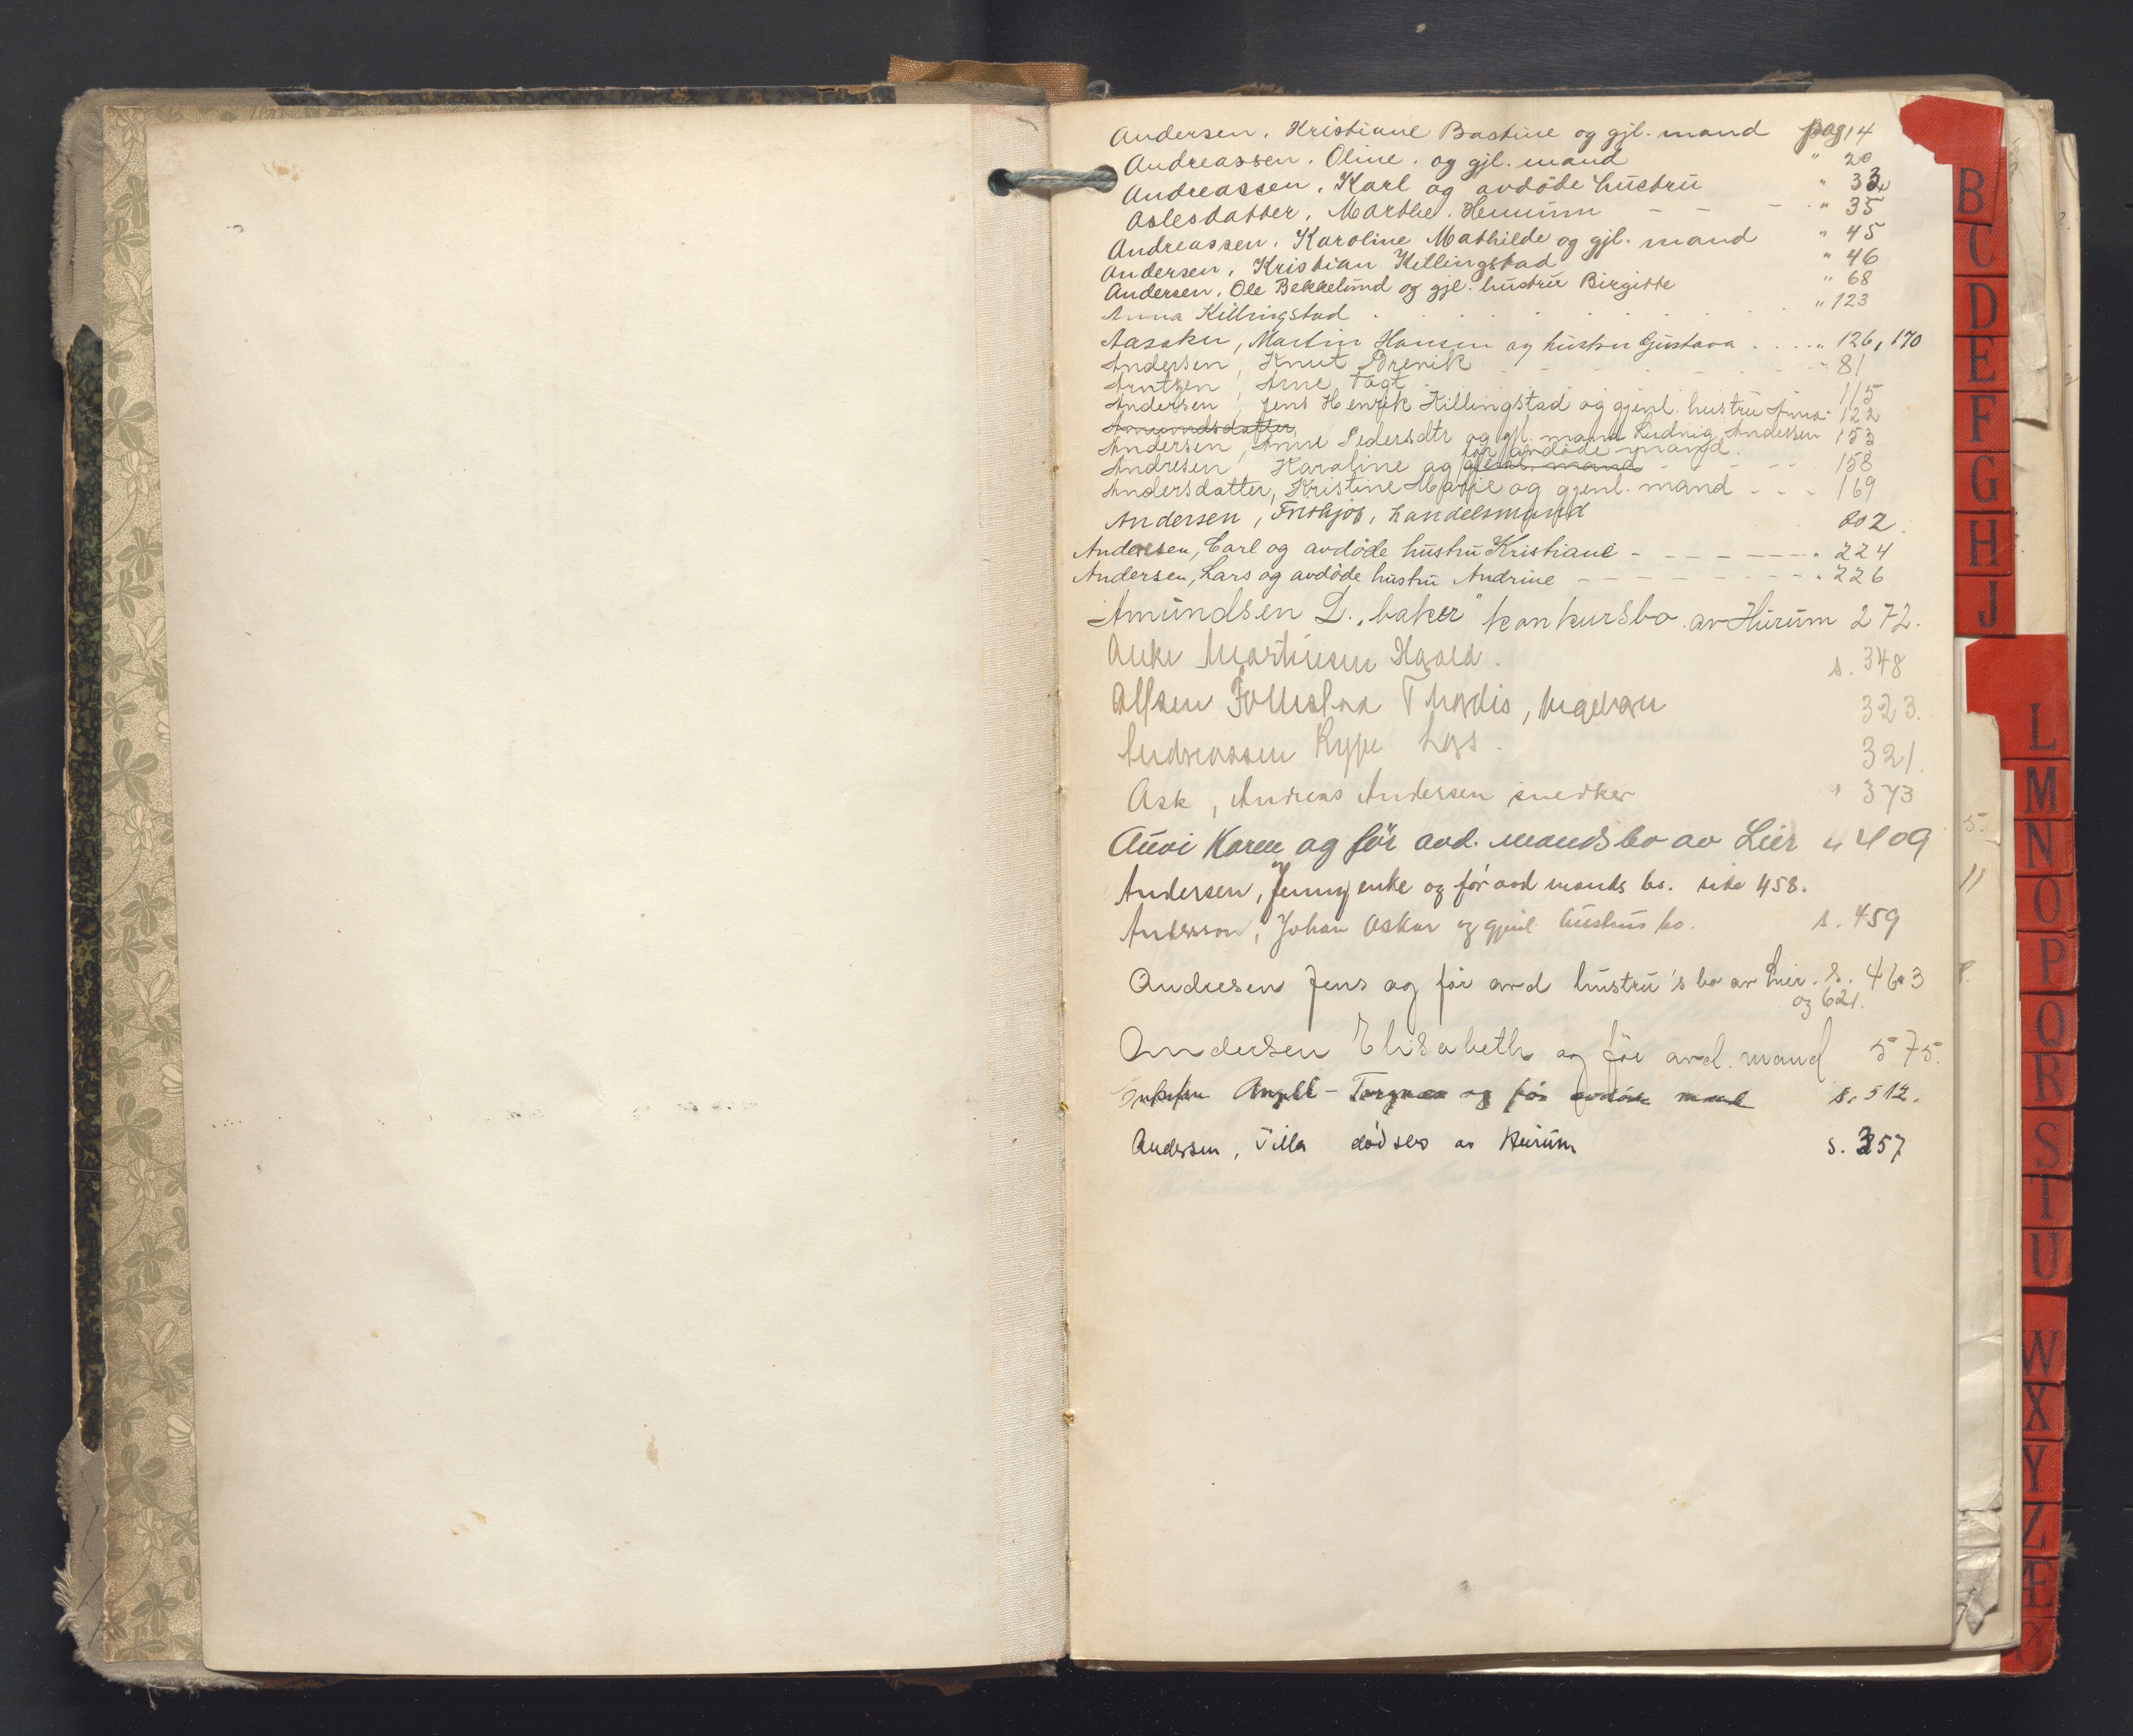 Andersen, Kristiane Bastine og gjl. mand pag 14
Andreassen, Oline, og gjl. mand " 20
Andreassen, Karl og avdöde hustru " 33
Aslesdatter, Marthe. Hennum - - - " 35
Andreassen, Karoline Mathilde og gjl. mand " 45
Andersen, Kristian Killingstad " 46
Andersen, Ole Bekkelund og gjl. hustru Birgitte " 68
Anna Killingstad " 123
Aasaker, Martin Hansen og hustru Gustava " 126, 170
Andersen, Knut Brenik " 81
Arntzen, Arne, Tagt 115
Andersen, Jens Henrik Killingstad og gjenl. hustru Anna 122
Amundsdatter
Andersen, Anne Pedersdtr og gjl. mand Ludvig Andersen 153
før avdöde mand.
Andresen, Karoline og gjenl. mand - - - 158
Andersdatter, Kristine Marie og gjenl. mand - - - 169
Andersen, Frithjof, handelsmand 202.
Andersen, Carl og avdöde hustru Kristiane - - - " 224
Andersen, Lars og avdöde hustru Andrine - - - " 226
Amundsen L. "baker" konkursbo av Hurum 272.
Martinsen s. 348
Alfsen Thordis, 323.
Andreassen Rype Lars. 321.
Ask, Andreas Andersen snedker " 373
Auvi Karen og før avd. mands bo av Lier " 409
Andersen, Jenny enke og før avd mands bo. side 458.
Andersson, Johan Oskar og gjenl. hustrus bo. s. 459
Andresen Jens og før avd hustru's bo av Lier. s. 463
og 621.
Andersen Elisabeth og før avd. mand 575.
Angell - og før avdöde mand s. 512.
Andersen, Villa dödsbo av Hurum s. 357
B
C
D
E
F
G
H
J
L
M
N
O
P
Q
R
S
T
U
W
X
Y
Z
Æ